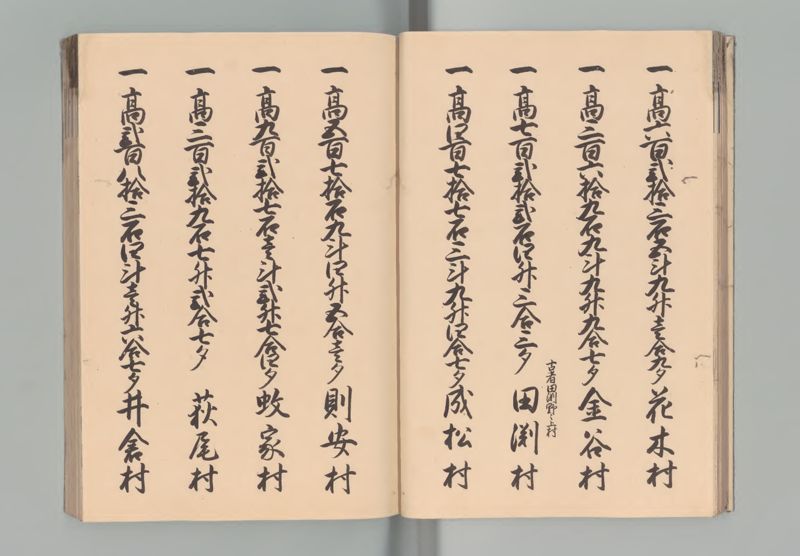 一 高六百弐拾三石五斗九升壱合九夕 花木村
一 高三百六拾九石九斗九升九合七夕 金谷村
古者田渕野々上村
一 高七百弐拾弐石四升三合三夕 田渕村
一 高四百七拾七石三斗九升四合七夕 成松村
一 高五百七拾石九斗四升五合壱夕 則安村
一 高九百弐拾七石壱斗弐升七合四夕 蚊家村
一 高三百弐拾九石七升弐合七夕 萩尾村
一 高弐百八拾三石四斗壱升六合七夕 井倉村